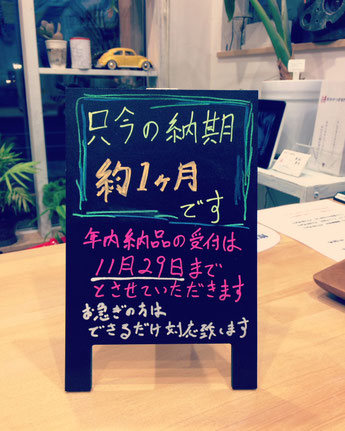 只今の納期
約1ヶ月
です
年内納品の受付は
11月29日まで
とさせていただきます
お急ぎの方は
できるだけ対応致します